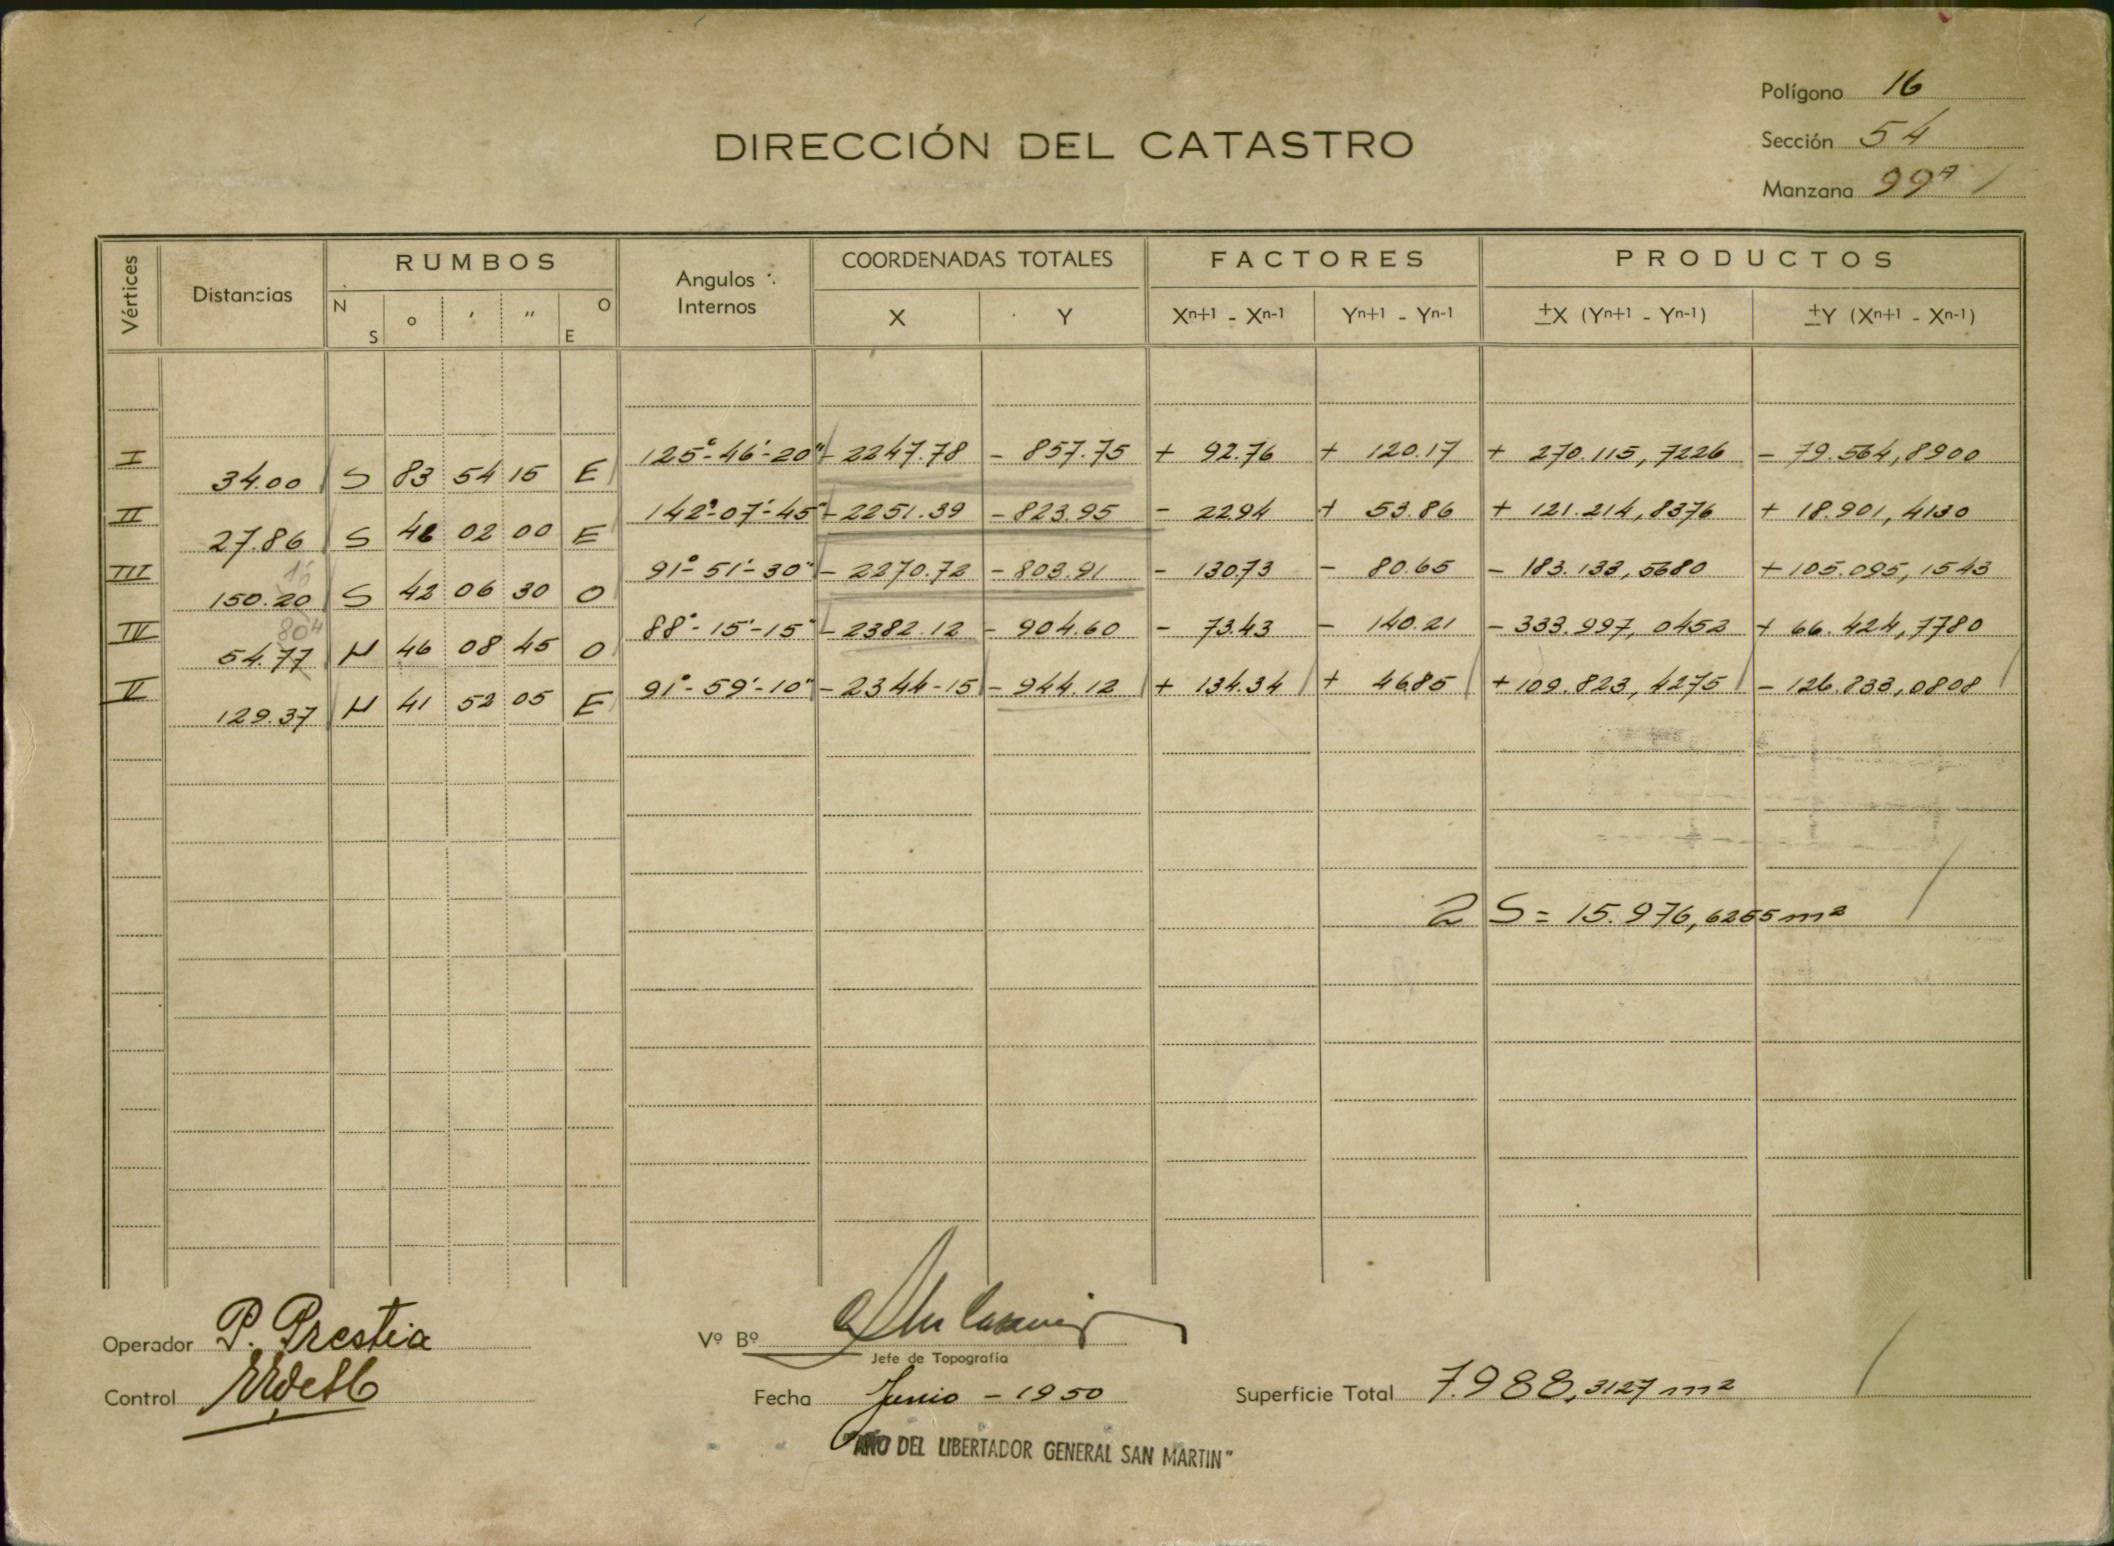 Polígono 16
DIRECCIÓN DEL CATASTRO
Sección 54
Manzana 99A
Vértices Distancias RUMBOS Angulos Internos COORDENADAS TOTALES FACTORES PRODUCTOS
N S o ′ ″ O E X Y Xn+1 - Xn-1 Yn+1 - Yn-1 ±X (Yn+1 - Yn-1) ±Y (Xn+1 - Xn-1)
I 125°-46'-20" - 2247.78 - 857.75 + 92.76 + 120.17 + 270.115,7226 - 79.564,8900
34.00 S 83 54 15 E
II 142°-07'-45" - 2251.39 - 823.95 - 22.94 + 53.86 + 121.214,8376 + 18.901,4130
27.86 S 46 02 00 E
III 91°-51'-30" - 2270.72 - 803.91 - 130.73 - 80.65 - 183.133,5680 + 105.095,1543
16
150.20 S 42 06 30 O
IV 88°-15'-15" - 2382.12 - 904.60 - 73.43 - 140.21 - 333.997,0452 + 66.424,7780
804
54.77 N 46 08 45 O
V 91°-59'-10" - 2344-15 - 944.12 + 134.34 + 46.85 + 109.823,4275 - 126.833,0808
129.37 N 41 52 05 E
2 S = 15.976,6255 m2
Operador P. Prestia
Vº Bº
Jefe de Topografía
Control
Fecha Junio - 1950
Superficie Total 7.988,3127 m2
"AÑO DEL LIBERTADOR GENERAL SAN MARTIN"